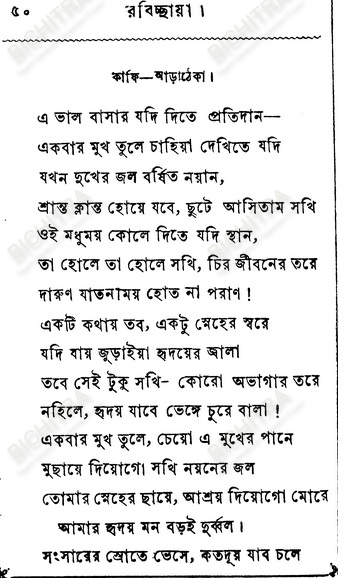 ৫০ রবিচ্ছায়া।
কাফি—আড়াঠেকা।
এ ভাল বাসার যদি দিতে প্রতিদান—
একবার মুখ তুলে চাহিয়া দেখিতে যদি
যখন দুখের জল বর্ষিত নয়ান,
শ্রান্ত ক্লান্ত হোয়ে যবে, ছুটে আসিতাম সখি
ওই মধুময় কোলে দিতে যদি স্থান,
তা হোলে তা হোলে সখি, চির জীবনের তরে
দারুণ যাতনাময় হোত না পরাণ !
একটি কথায় তব, একটু স্নেহের স্বরে
যদি যায় জুড়াইয়া হৃদয়ের জ্বালা
তবে সেই টুকু সখি- কোরো অভাগার তরে
নহিলে, হৃদয় যাবে ভেঙ্গে চুরে বালা !
একবার মুখ তুলে, চেয়ো এ মুখের পানে
মুছায়ে দিয়োগো সখি নয়নের জল
তোমার স্নেহের ছায়ে, আশ্রয় দিয়োগো মোরে
আমার হৃদয় মন বড়ই দুর্ব্বল।
সংসারের স্রোতে ভেসে, কতদূর যাব চলে
BICHITRA